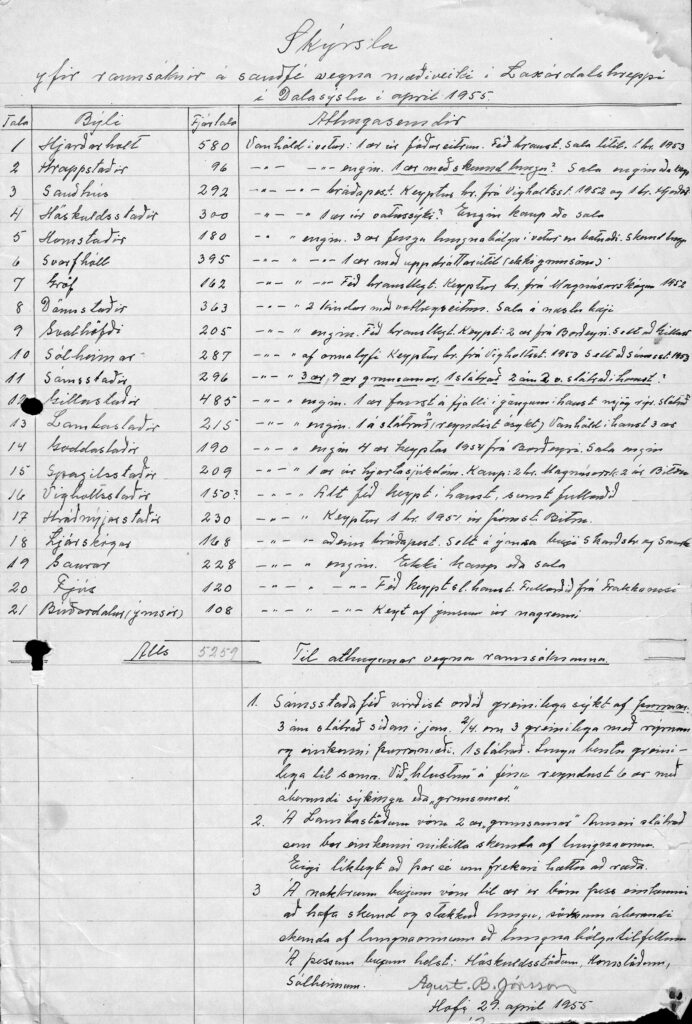 Skýrsla
yfir rannsóknir á sauðfé vegna mæðiveiki í Laxárdalshreppi
í Dalasýslu í apríl 1955.
Tala Býli Fjártala Athugasemdir
1 Hjarðarholt 580 Vanhöld í vetur. 1 ær úr fóðureitrun. Féð hraust. Sala lítil. 1953
2 Hrappstaðir 96 —"— —"— engin. 1 ær með skemd lungu? Sala engin eða
3 Sauðhús 292 —"— —"— bráðapest. Keyptur hr. frá Vígholtsst. 1952 og 1 hr.
4 Höskuldsstaðir 300 —"— —"— 1 ær úr vatnssýki? Engin kaup eða sala
5 Hornstaðir 180 —"— " engin. 3 ær fengu lungnabólgu í vetur en
6 Svarfhóll 395 —"— " 1 ær með uppdráttarútlit (ekki grunsöm)
7 Gröf 162 —"— " Féð hraustlegt. Keyptur hr. frá Magnússkógum 1952
8 Dönustaðir 363 —"— " 2 kindur með Sala á næstu bæi
9 Svalhöfði 205 —"— " engin. Féð hraustlegt. Keypt: 2 ær frá Borðeyri. Selt að
10 Sólheimar 287 —"— " af ormalyfi Keyptur hr. frá Vígholtsst. 1953 Selt að 1953
11 Sámsstaðir 296 —"— " 3 ær, 9 ær grunsamar, 1 slátrað 2 ám í haust?
12 Gillastaðir 485 —"— " engin. 1 ær fanst á fjalli í göngum í haust mjög rýr. slátrað
13 Lambastaðir 215 —"— " engin. 1 á slátrað (reyndist ósýkt) Vanhöld í haust 3 ær
14 Goddastaðir 190 —"— " engin 4 ær keyptar 1954 frá Borðeyri. Sala engin
15 Spágilsstaðir 209 —"— " 1 ær úr hjartasjúkdóm. Kaup: 2 hr. Magnússk. 2 úr Bitru
16 Vígholtsstaðir 150? —"— " Alt féð keypt í haust, sumt fullorðið
17 Hrútsstaðir 230 —"— " Keyptur 1 hr. 1951 úr Bitru.
18 Ljárskógar 168 —"— " aðeins bráðapest. Selt á ýmsa bæi Skarðstr. og
19 Saurar 228 —"— " engin. Ekki kaup eða sala
20 Fjós 120 —"— " —"— —"— Féð keypt sl. haust. Fullorðið frá
21 Búðardalur (ýmsir) 108 —"— " —"— —"— Keypt af ýmsum úr nágrenni
Alls 5259 Til athugunar vegna rannsóknanna.
1. Sámsstaða féð virðist orðið greinilega sýkt af
3 ám slátrað síðan í jan. 2/4. en 3 greinilega með rýrnun
og einkenni þurramæði. 1 slátrað. Lungu bentu greini-
lega til sama. Við „hlustun" á fénu reyndust 6 ær með
áberandi sýkingu eða „grunsamar."
2. Á Lambastöðum vóru 2 ær „grunsamar" Annari slátrað
sem bar einkenni mikilla skemda af lungnaorma.
Eigi líklegt að þar sé um frekari hættu að ræða.
3 Á nokkrum bæjum vóru til ær er báru þess einkenni
að hafa skemd og stækkuð lungu, sökum áberandi
skemda af lungnaormum eð lungnabólgutilfellum
Á þessum bæjum helst: Höskuldsstöðum, Hornstöðum,
Sólheimum. Águst. B. Jónsson
Hofi 29. apríl 1955